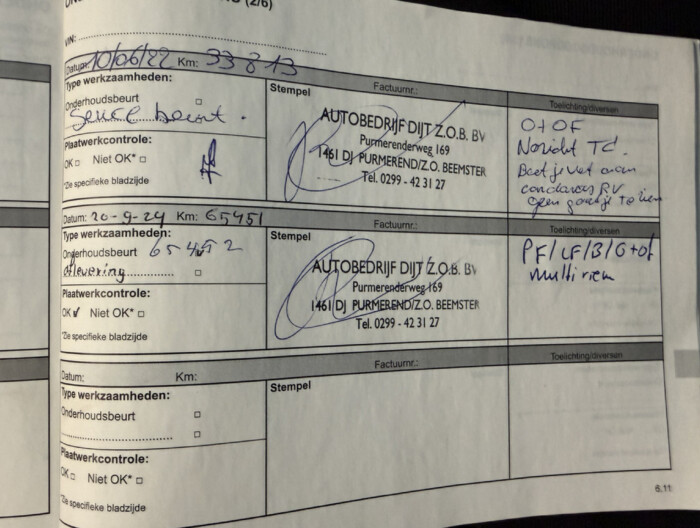 (2/6)
VIN:
Datum: 10/06/22 Km: 33 813
Factuurnr.:
Toelichting/diversen
Type werkzaamheden:
Onderhoudsbeurt
beurt.
Plaatwerkcontrole:
OK Niet OK*
*Zie specifieke bladzijde
Stempel
AUTOBEDRIJF DIJT Z.O.B. BV
Purmerenderweg 169
1461 DJ PURMEREND/Z.O. BEEMSTER
Tel. 0299 - 42 31 27
O+OF
TC.
Beetje vet
RV
geen
Datum: 20-9-24 Km: 65451
Factuurnr.:
Toelichting/diversen
Type werkzaamheden:
Onderhoudsbeurt 65452
aflevering
Plaatwerkcontrole:
OK Niet OK*
*Zie specifieke bladzijde
Stempel
AUTOBEDRIJF DIJT Z.O.B. BV
Purmerenderweg 169
1461 DJ PURMEREND/Z.O. BEEMSTER
Tel. 0299 - 42 31 27
PF/LF/B/O+of
multiriem
Datum: Km:
Factuurnr.:
Toelichting/diversen
Type werkzaamheden:
Onderhoudsbeurt
Plaatwerkcontrole:
OK Niet OK*
*Zie specifieke bladzijde
Stempel
6.11